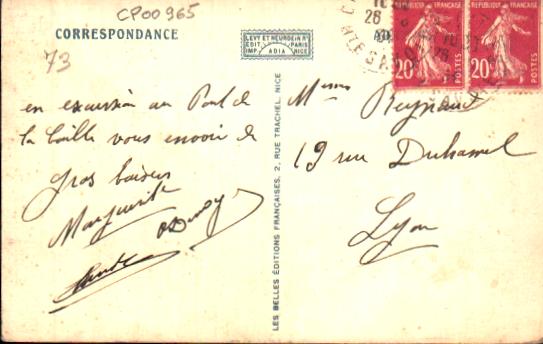 CP00965
CORRESPONDANCE
LEVY ET NEURDEIN RÉUNIS
EDIT. PARIS
IMP. ADIA NICE
73
en excursion au Pont de
la Caille vous envoie de
gros baisers
Marguerite
LES BELLES ÉDITIONS FRANÇAISES, 2, RUE TRACHEL, NICE
26
RÉPUBLIQUE FRANÇAISE
20c
POSTES
RÉPUBLIQUE FRANÇAISE
20c
POSTES
Mmes Reynaud
19 rue Duhamel
Lyon